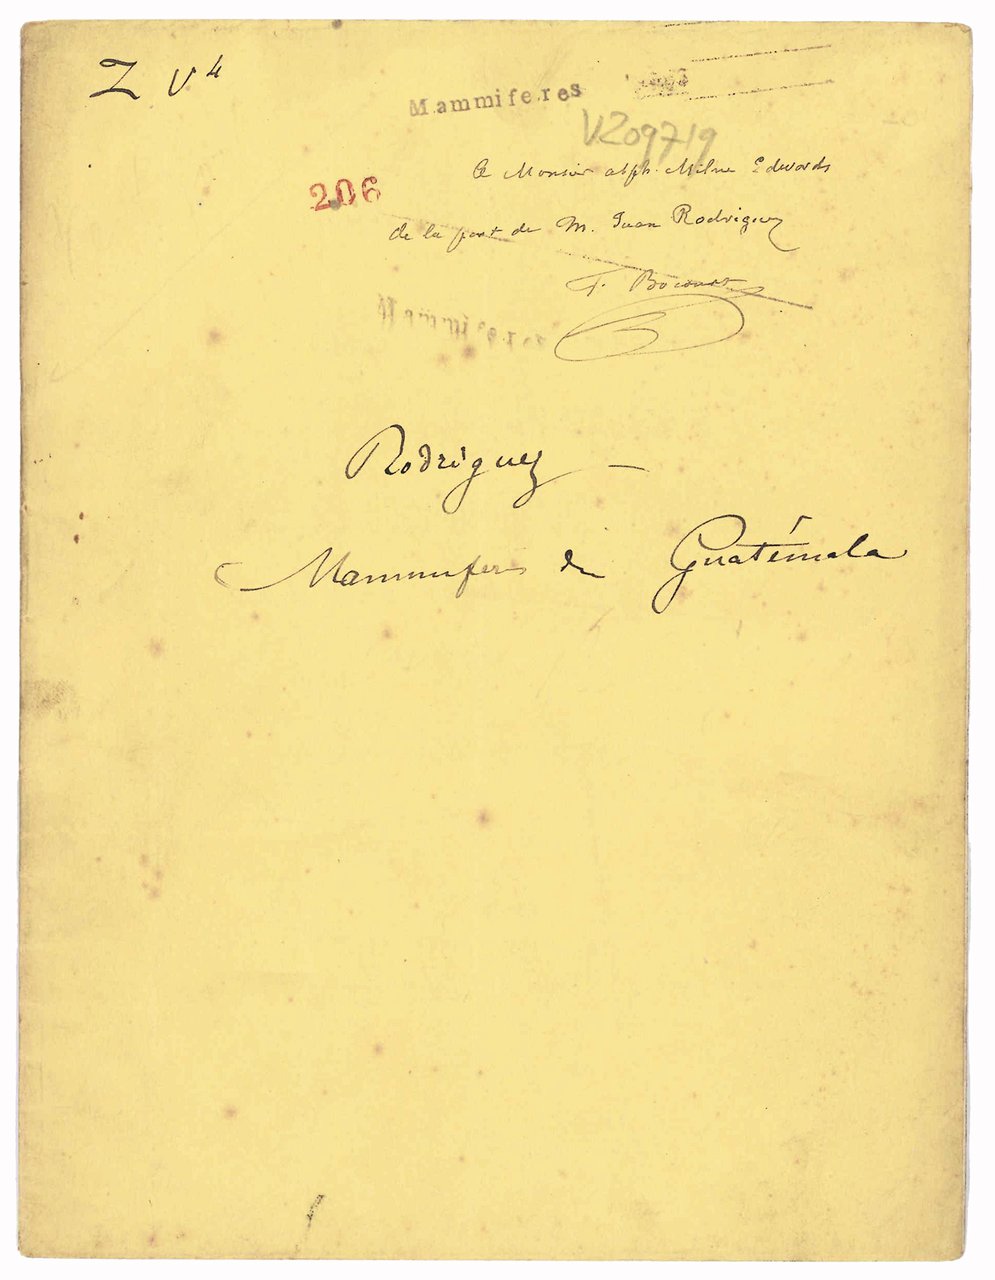 Z V⁴
Mammiferes
V209719
206
A Monsieur alph. Milne Edwards
de la part de M. Juan Rodriguez
F. Bocourt
Rodriguez —
Mammiferes de Guatémala